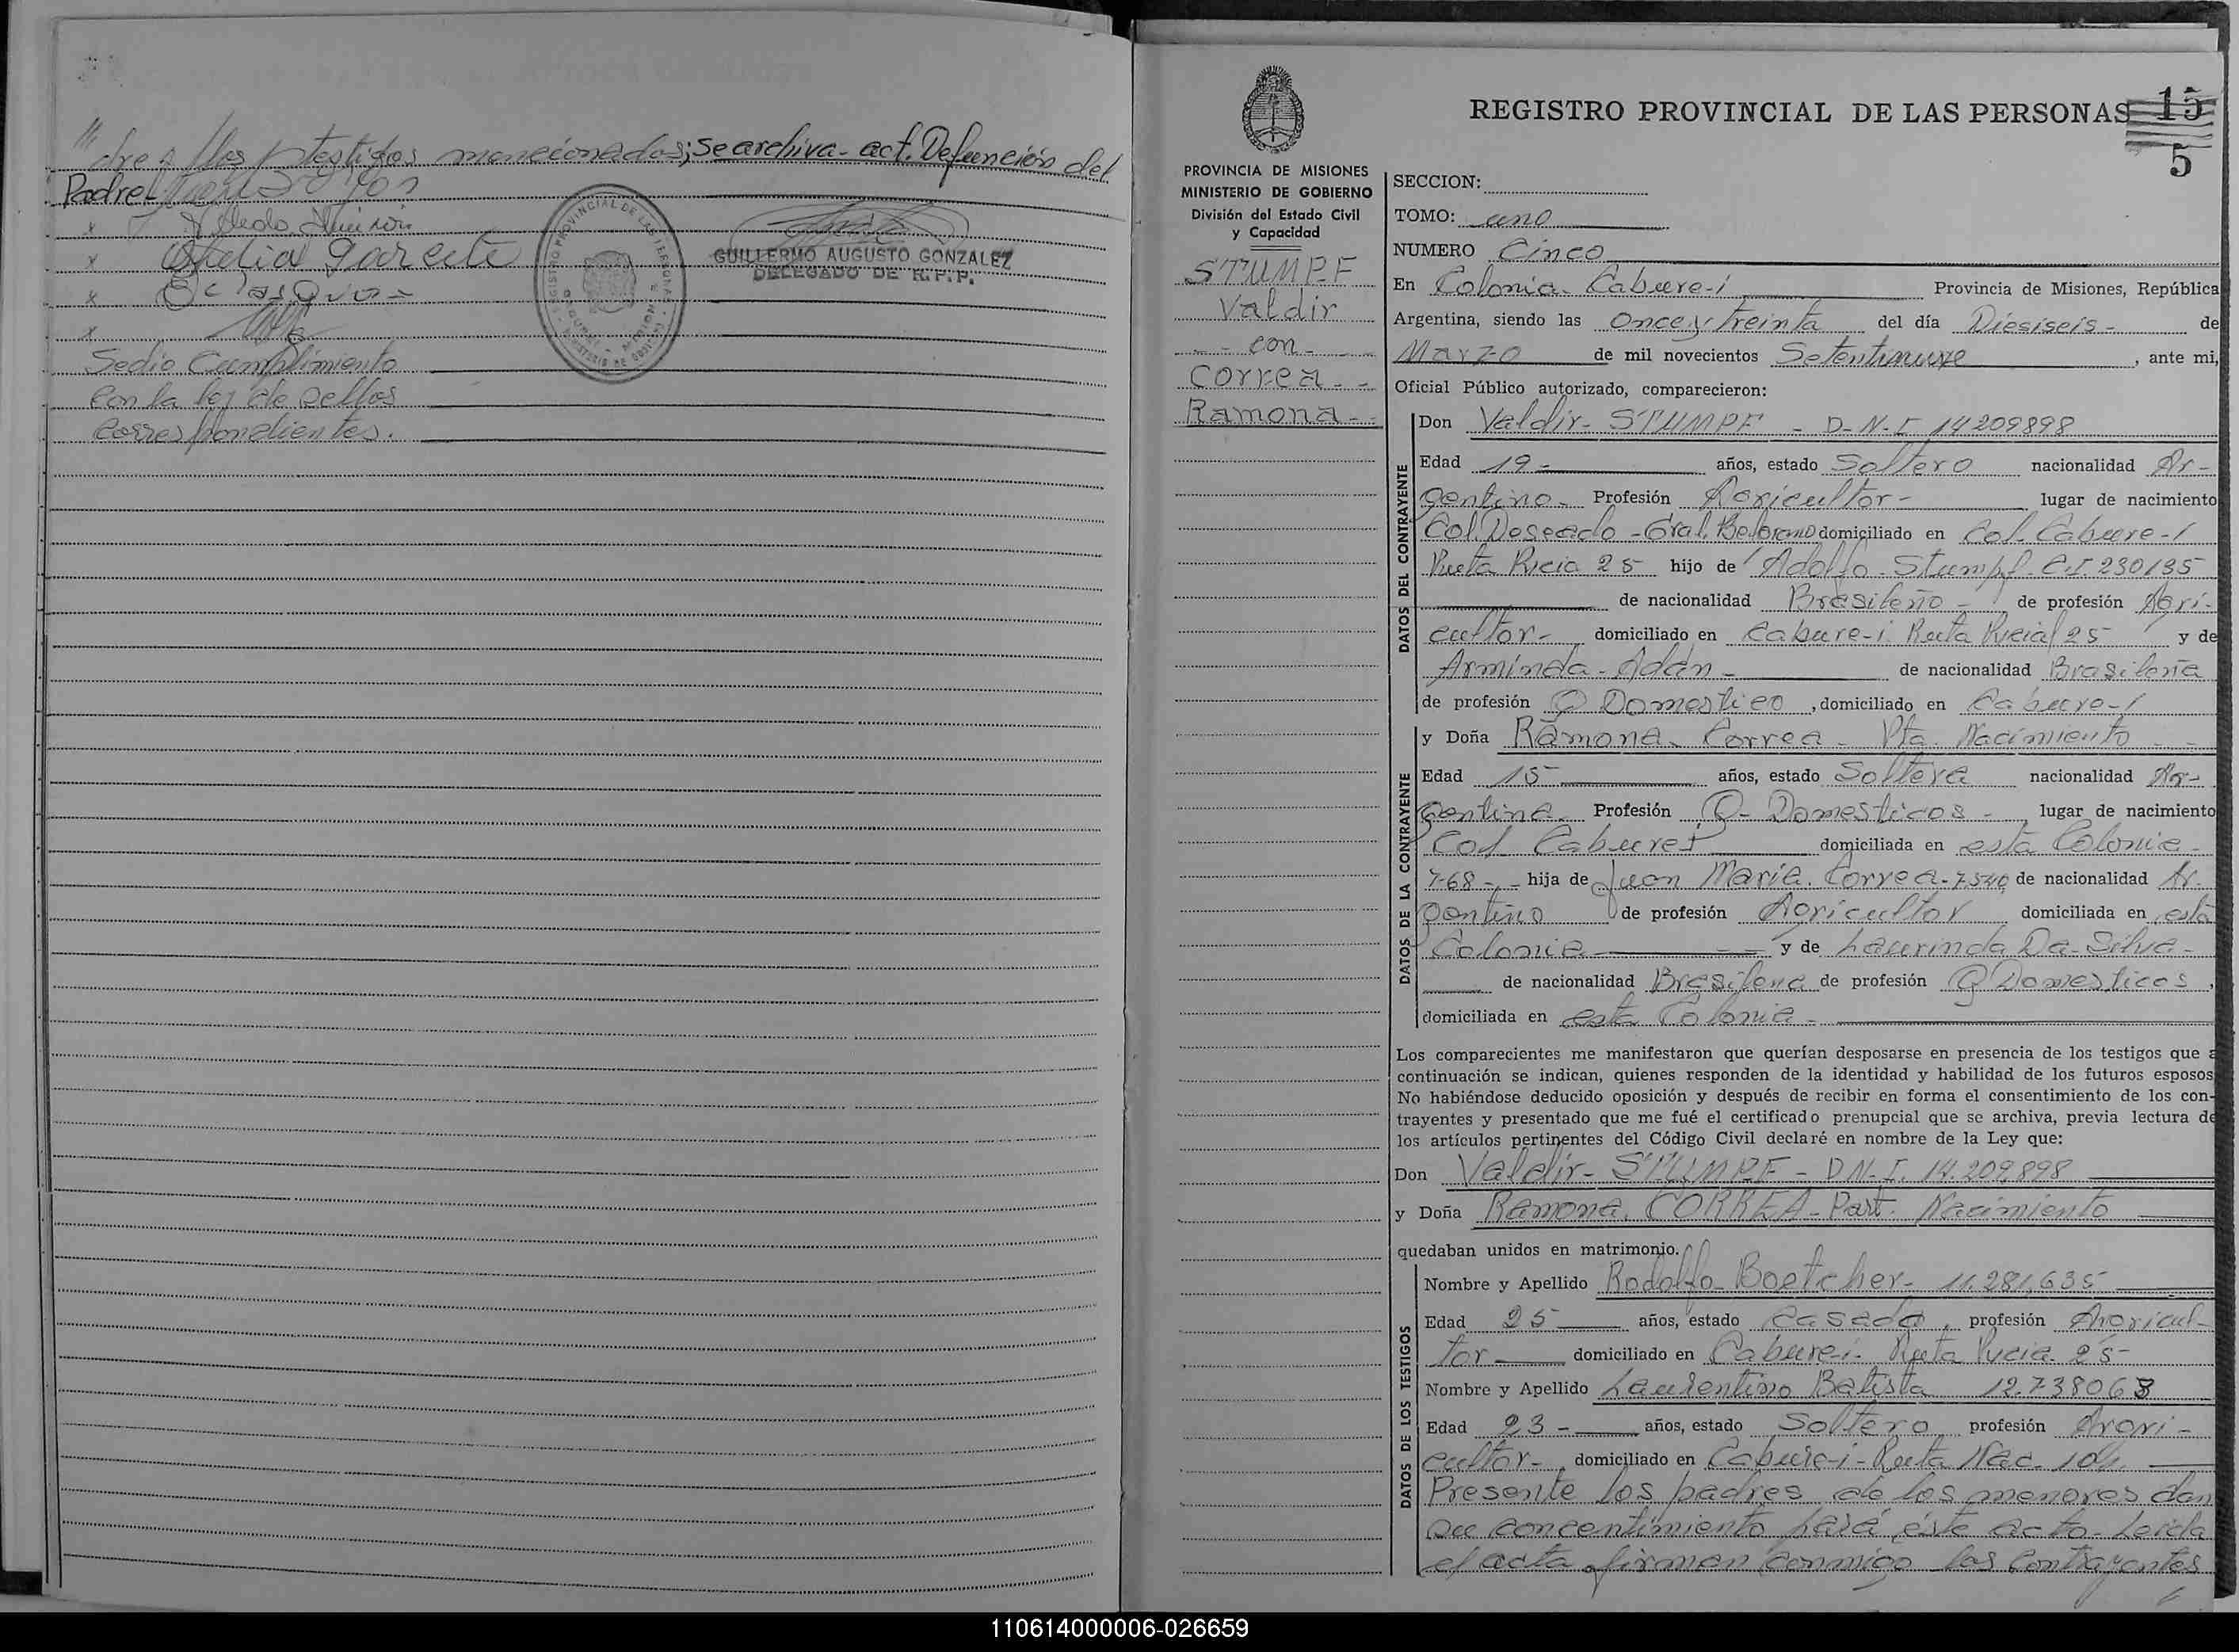 dre y los testigos mencionados; se archiva- act. Defunción del
Padre
x
x Ofelia
x
x
Sedio Cumplimiento
Con la ley de Sellos
Correspondientes.
GUILLERMO AUGUSTO GONZALEZ
DELEGADO DE R.P.P.
REGISTRO PROVINCIAL DE LAS PERSONAS
15
5
PROVINCIA DE MISIONES
MINISTERIO DE GOBIERNO
División del Estado Civil
y Capacidad
STUMPF
Valdir
- - con - -
Correa - -
Ramona - -
SECCION:
TOMO: uno
NUMERO Cinco
En Colonia- Cabure-i Provincia de Misiones, República
Argentina, siendo las Once y treinta del día Diesiseis - de
Marzo de mil novecientos Setentinueve, ante mi,
Oficial Público autorizado, comparecieron:
DATOS DEL CONTRAYENTE
Don Valdir- STUMPF - D-N-I 14209898
Edad 19- años, estado Soltero nacionalidad Ar-
gentino- Profesión Agricultor- lugar de nacimiento
Col. Deseado - Gral. Belgrano domiciliado en Col. Cabure-i
Ruta Pucia 25 hijo de Adolfo- Stumpf- C.I. 230135
de nacionalidad Brasileño- de profesión Agri-
cultor- domiciliado en Cabure-i. Ruta Pucial 25 y de
Arminda- Adán- de nacionalidad Brasileña
de profesión Q Domestico, domiciliado en Cabure-i
DATOS DE LA CONTRAYENTE
y Doña Ramona- Correa- Pta. Nacimiento - -
Edad 15 años, estado Soltera nacionalidad Ar-
gentina. Profesión Q- Domesticos- lugar de nacimiento
Col Caburei domiciliada en esta Colonia-
7-68-, - hija de Juan Maria. Correa-7.540 de nacionalidad Ar-
gentino de profesión Agricultor domiciliada en esta
Colonia == y de Laurinda Da-Silva-
de nacionalidad Brasileña de profesión Q Domesticos,
domiciliada en esta Colonia-
Los comparecientes me manifestaron que querían desposarse en presencia de los testigos que a
continuación se indican, quienes responden de la identidad y habilidad de los futuros esposos
No habiéndose deducido oposición y después de recibir en forma el consentimiento de los con-
trayentes y presentado que me fué el certificado prenupcial que se archiva, previa lectura de
los artículos pertinentes del Código Civil declaré en nombre de la Ley que:
Don Valdir- STUMPF - D N-I. 14.209,898
y Doña Ramona. CORREA- Part. Nacimiento
quedaban unidos en matrimonio.
DATOS DE LOS TESTIGOS
Nombre y Apellido Rodolfo- Boetcher- 11.281,635
Edad 25 años, estado casado, profesión Agricul-
tor- domiciliado en Cabure-i- Ruta Pucia- 25-
Nombre y Apellido Laurentino Batista 12.738068
Edad 23- años, estado Soltero profesión Agri-
cultor-, domiciliado en Cabure-i- Ruta Nac. 101
Presente los padres de los menores dan
su concentimiento pará éste acto- Leida
el acta firman conmigo los Contrayentes
110614000006-026659